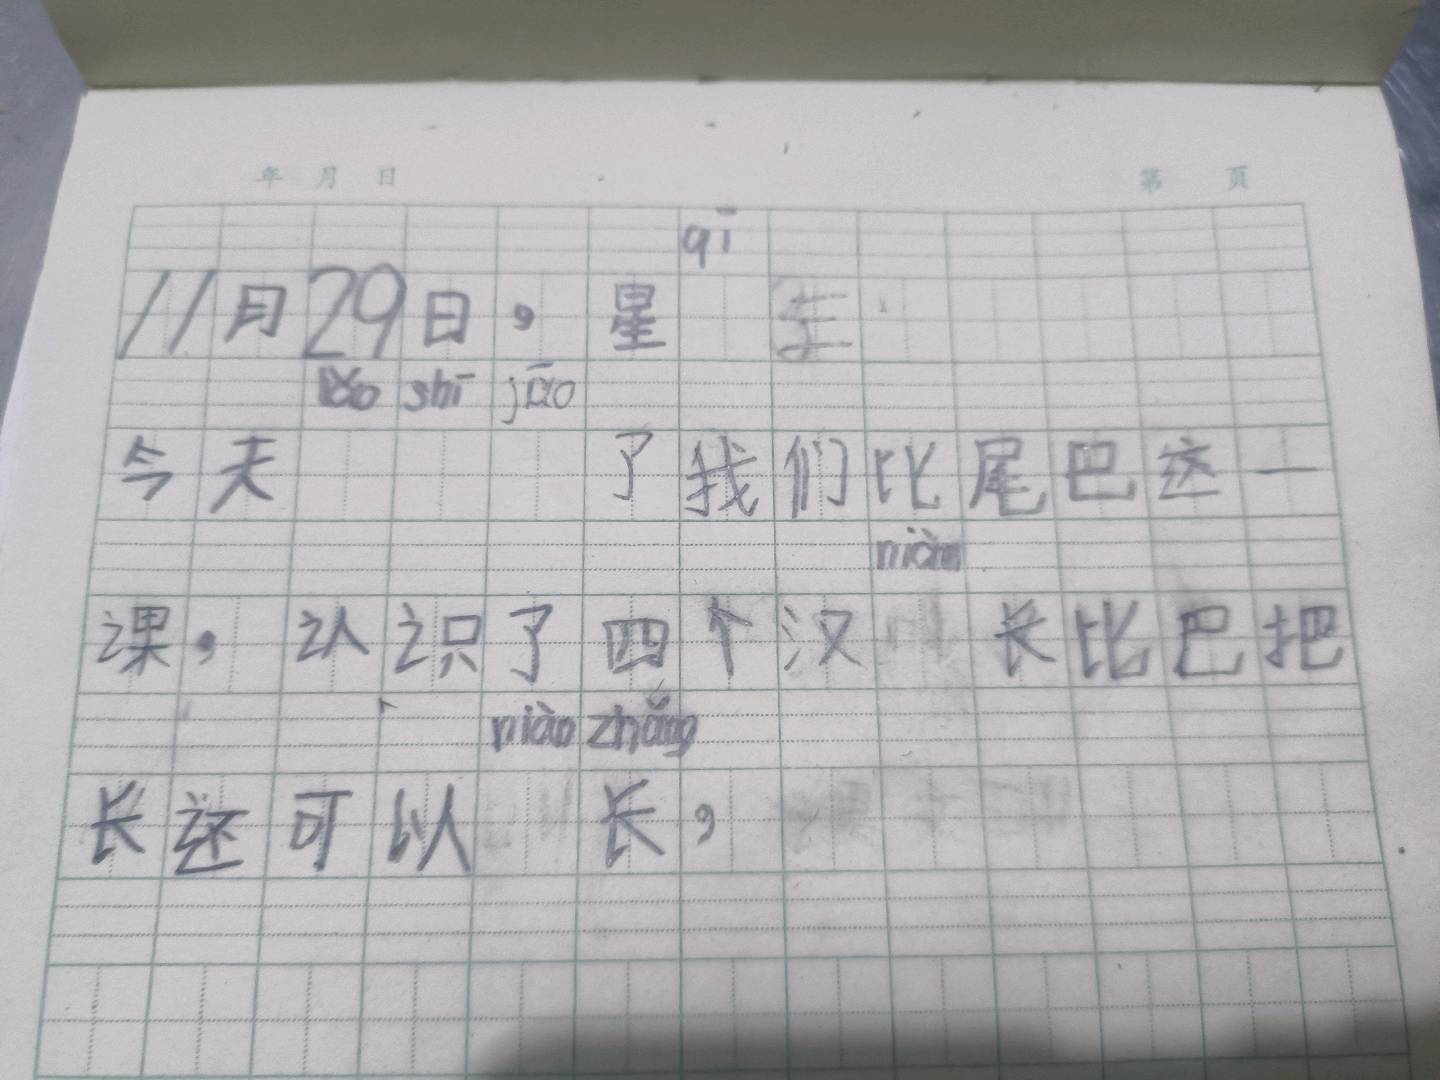 年 月 日 第 頁
qī
11月29日，星
lǎo shī jiāo
今天 了我们比尾巴这一
niàn
课，认识了四个汉 长比巴把
niào zhǎng
长还可以 长，